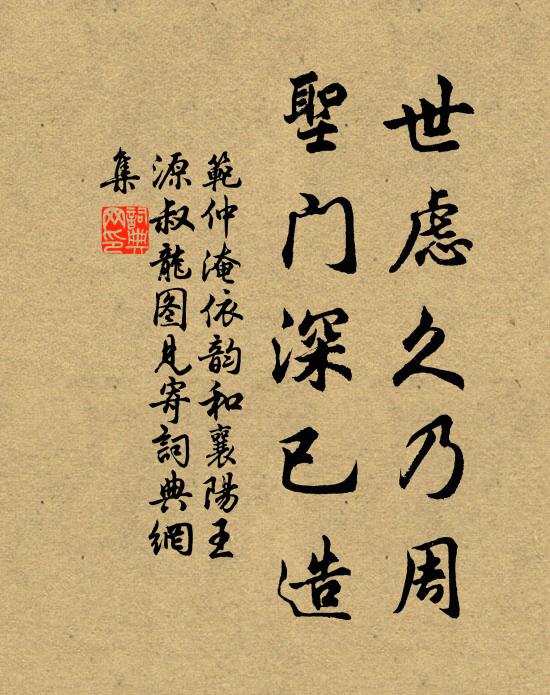 世慮久乃周
聖門深已造
範仲淹依韵和襄陽王
源叔龍图見寄詞典網
集
詞典
网印